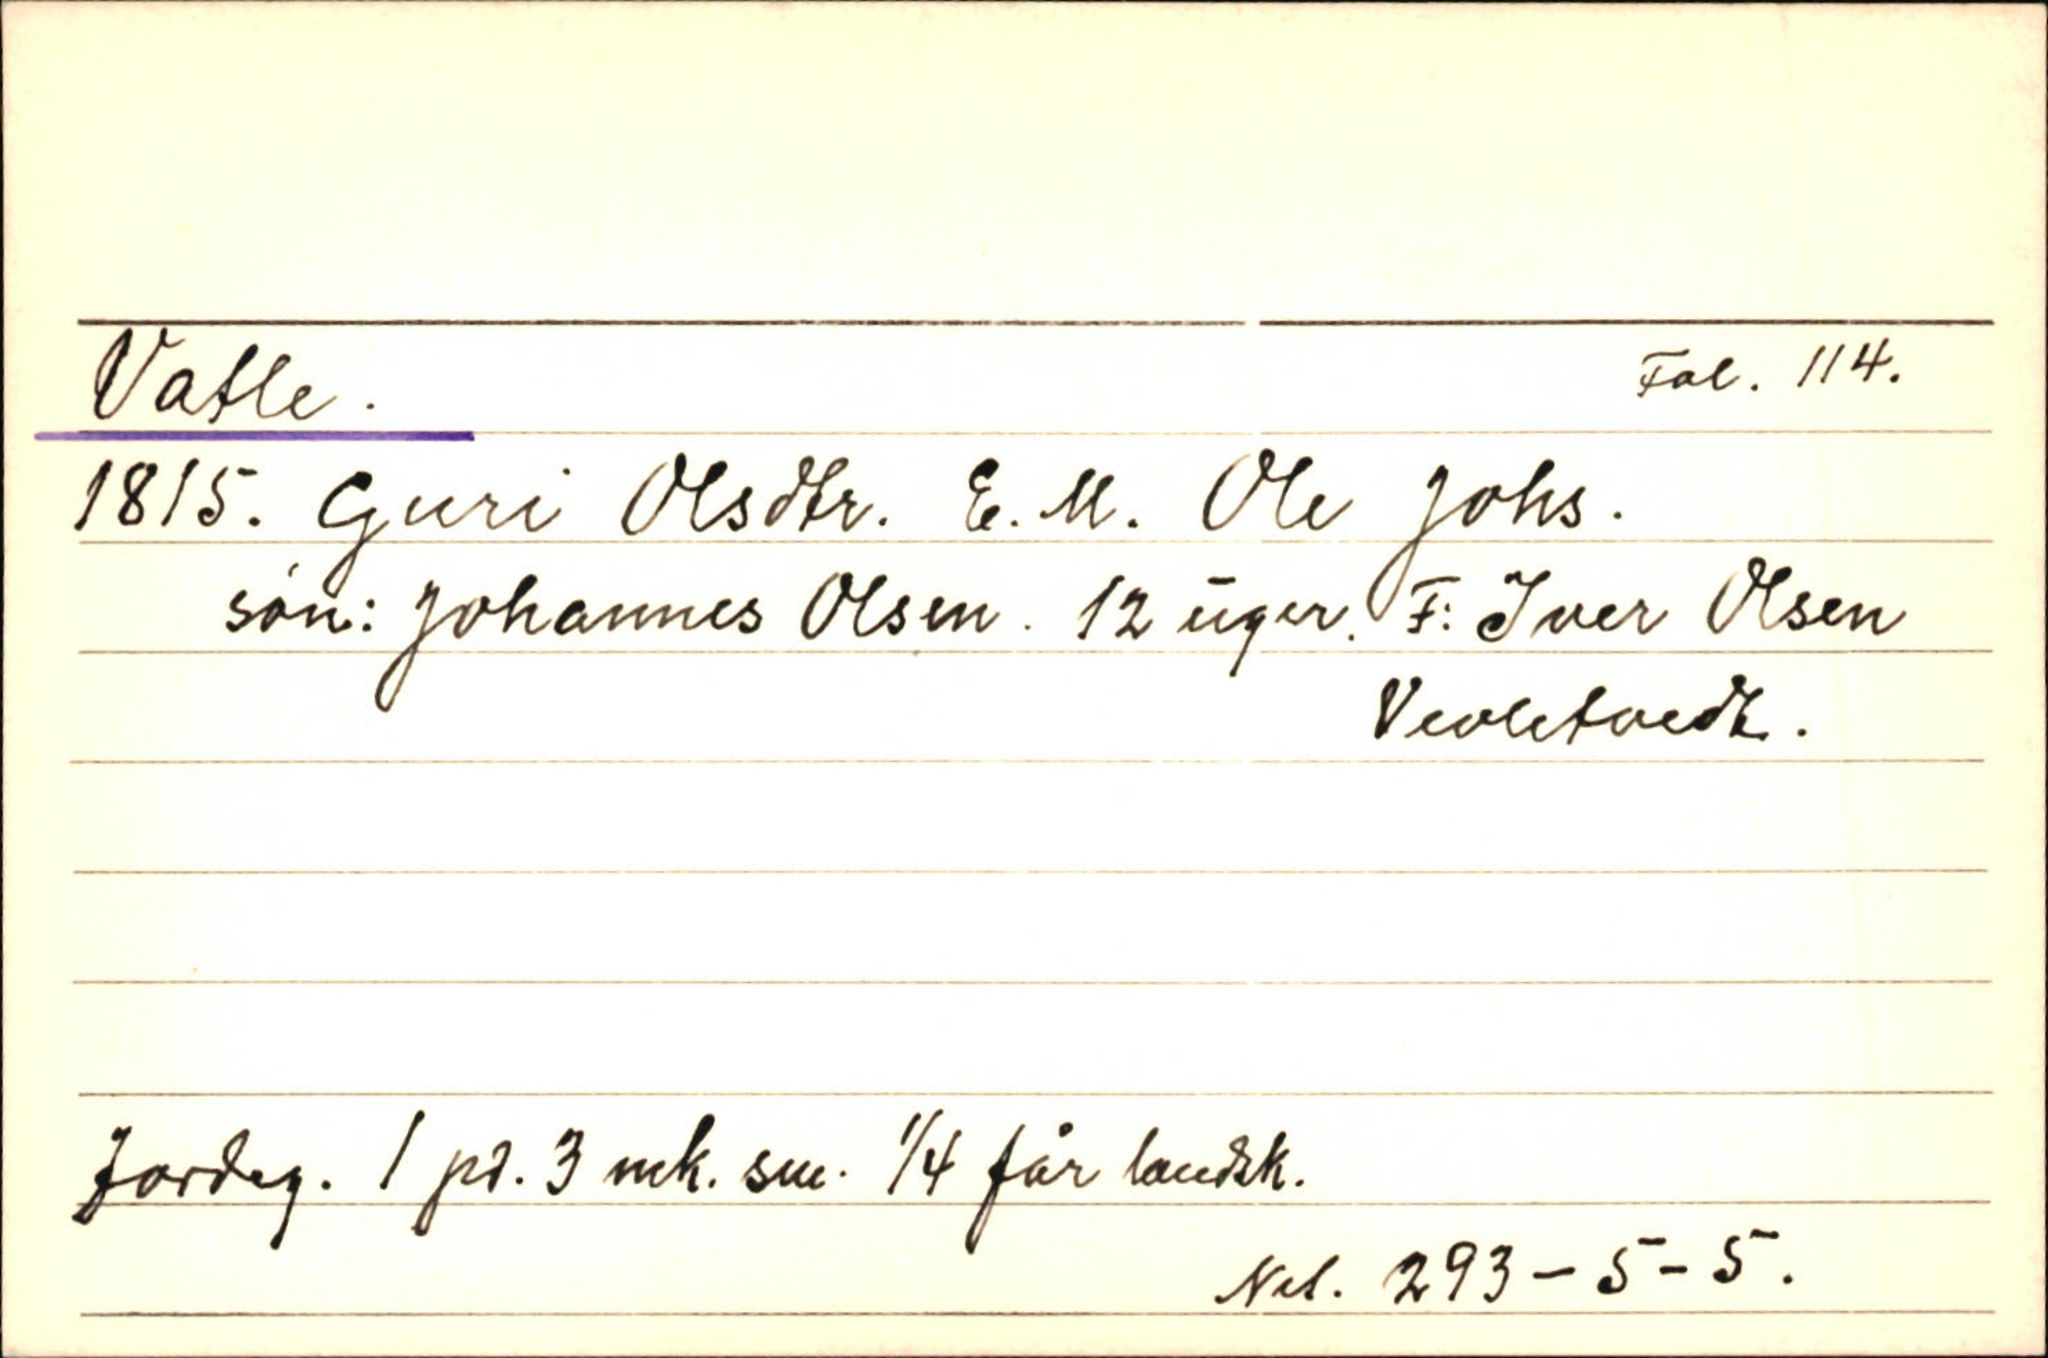 Vatle.
Fol. 114.
1815. Guri Olsdtr. E. M. Ole Johs.
sön: Johannes Olsen. 12 uger. F: Iver Olsen
Vevletvedt.
Jordeg. 1 pd. 3 mk. sm. 1/4 får landsk.
Net. 293-5-5.